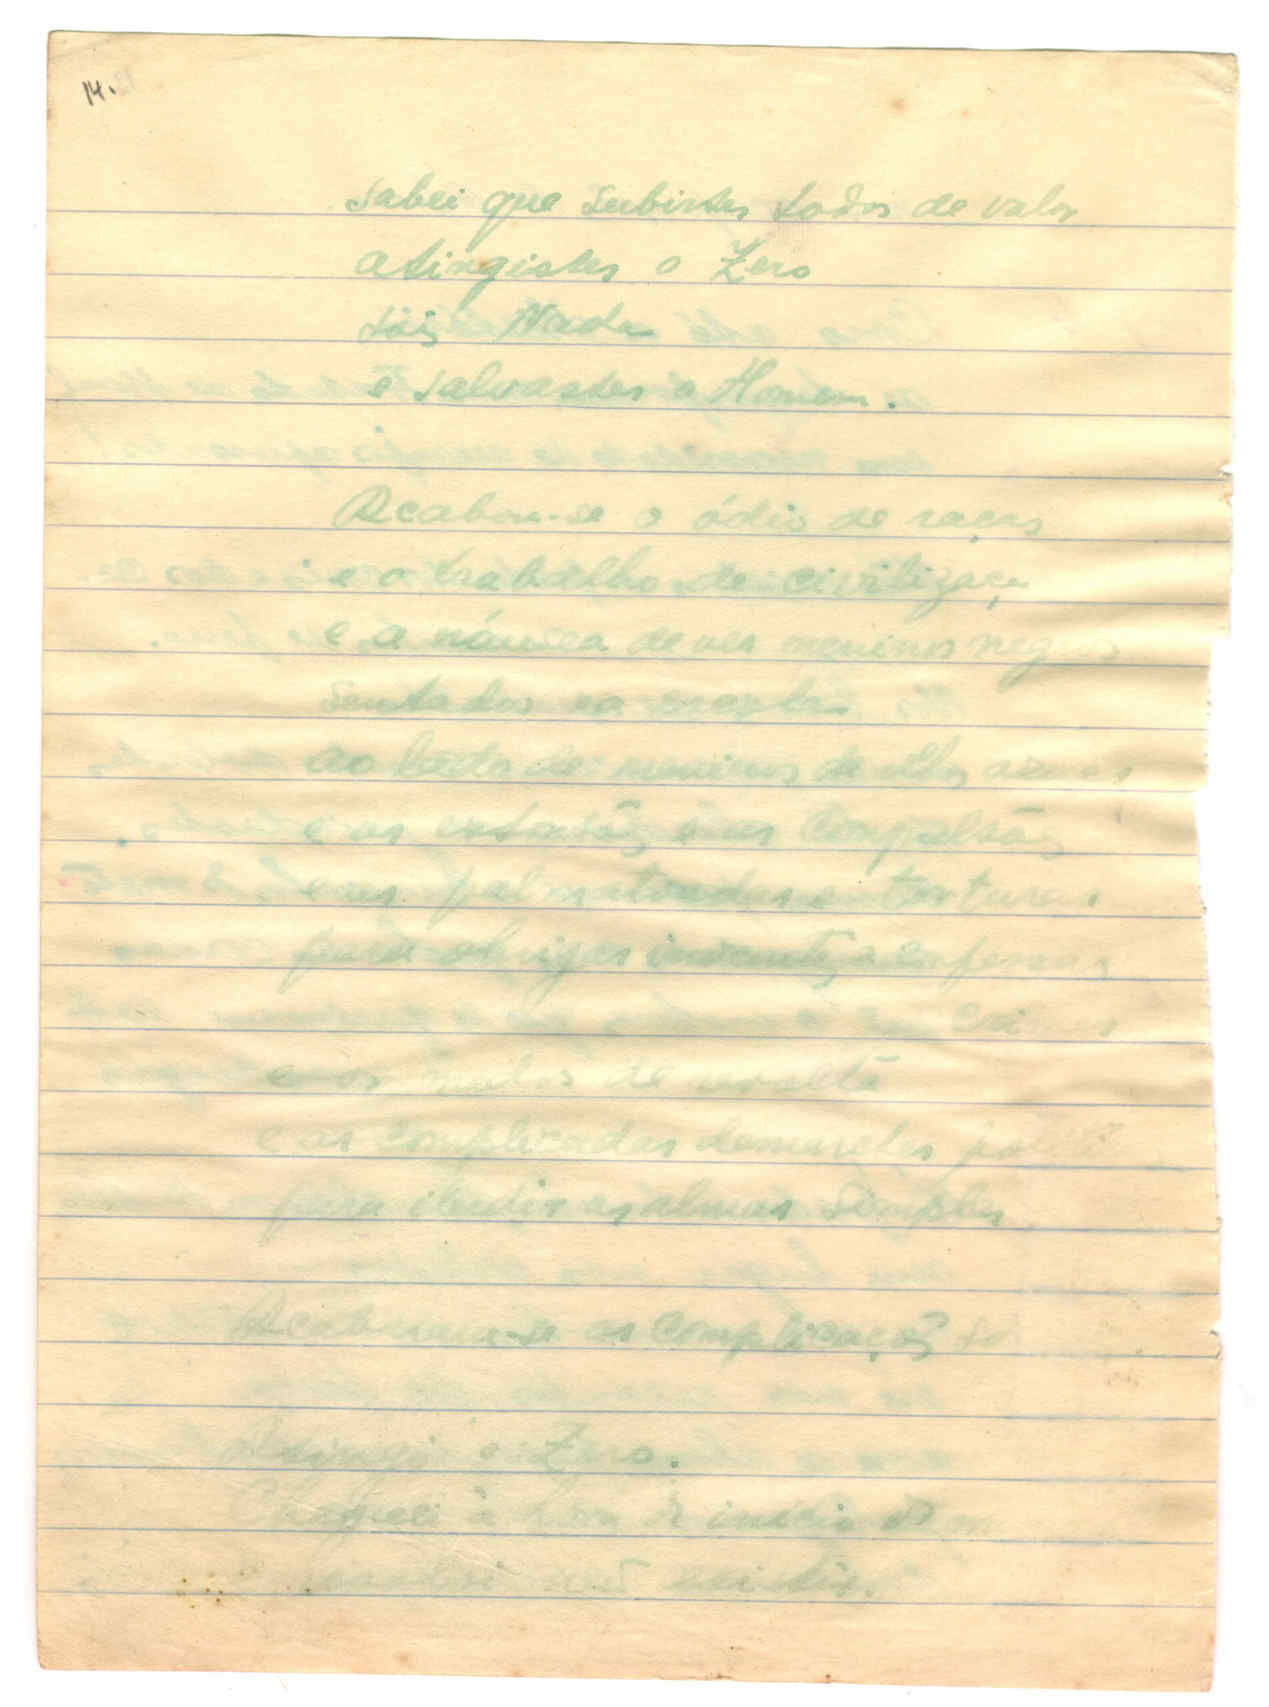 14.
sabei que subistes todos de valor
atingistes o Zero
sois Nada
e salvastes o Homem.
Acabou-se o ódio de raças
e o trabalho de civilizaçã
e a náusea de ver meninos negros
sentados na escola
ao lado de meninos de olhos azues
e as extorsões e as compulsões
e as palmatoadas e torturas
para obrigar inocentes a confessar
e os medos de revolta
e as complicadas demarches
para iludir as almas simples
Acabaram-se as complicações so
Atingi o Zero.
Cheguei à hora do início do m
não existir.